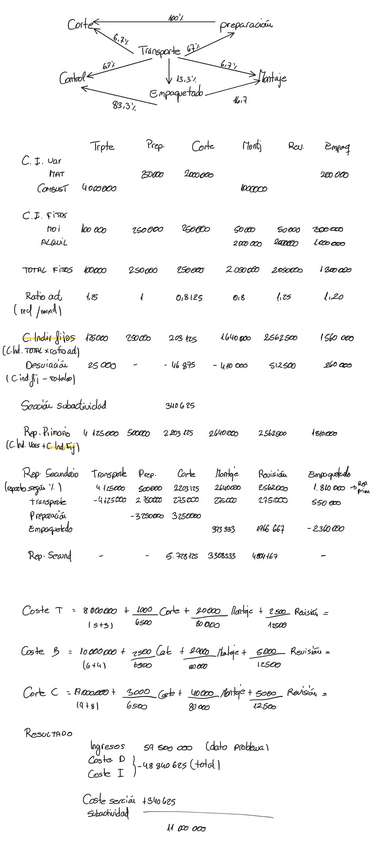 Corte 100% preparación
6,7% Transporte 67%
6,7% 6,7%
Control 13,3% Montaje
Empaquetado
83,3% 16,7
Trpte Prep. Corte Montj Rev. Empaq
C. I. Var
MAT 250000 2000000 200 000
COMBUST 4000000 1000000
C.I. Fijos
MOI 100 000 250000 250000 50000 50000 300000
ALQUIL 2000 000 2000000 1000 000
TOTAL FIJOS 100000 250000 250000 2.050000 2050000 1300000
Ratio act 1,25 1 0,8125 0,8 1,25 1,20
C. Indir fijos 125000 250000 203 125 1640000 2562500 1560 000
(C.Ind. TOTAL x ratio ad)
Desviación 25 000 - - 46 875 - 410 000 512500 260 000
Sección subactividad 340625
Rep. Primario 4 125 000 500000 2203 125 2640000 2562500
Rep Secundario Transporte Prep. Corte Montaje Revisión Empaquetado
(reparto según %) 4 125000 500000 2203125 2640000 1.810 000 → Rep. Prim
transporte -4125000 2 750000 275000 275000 275000 550 000
Preparación -3250000 3250000
Empaquetado 393333 1966 667 -2360000
Rep. Secund - - 5.728125 3308333 -
Coste T = 8000000 + 1000/6500 Corte + 20000/80000 Montaje + 2500/12500 Revisión =
(5+3)
Coste B = 10000000 + 2500/6500 Corte + 20000/80000 Montaje + 5000/12500 Revisión =
(6+4)
Coste C = 17000000 + 3000/6500 Corte + 40000/80000 Montaje + 5000/12500 Revisión =
(9+8)
RESULTADO
Ingresos 59 500 000 (dato problema)
Coste D
Coste I } -48 840 625 (total)
Coste sección +340 625
subactividad
11 000 000